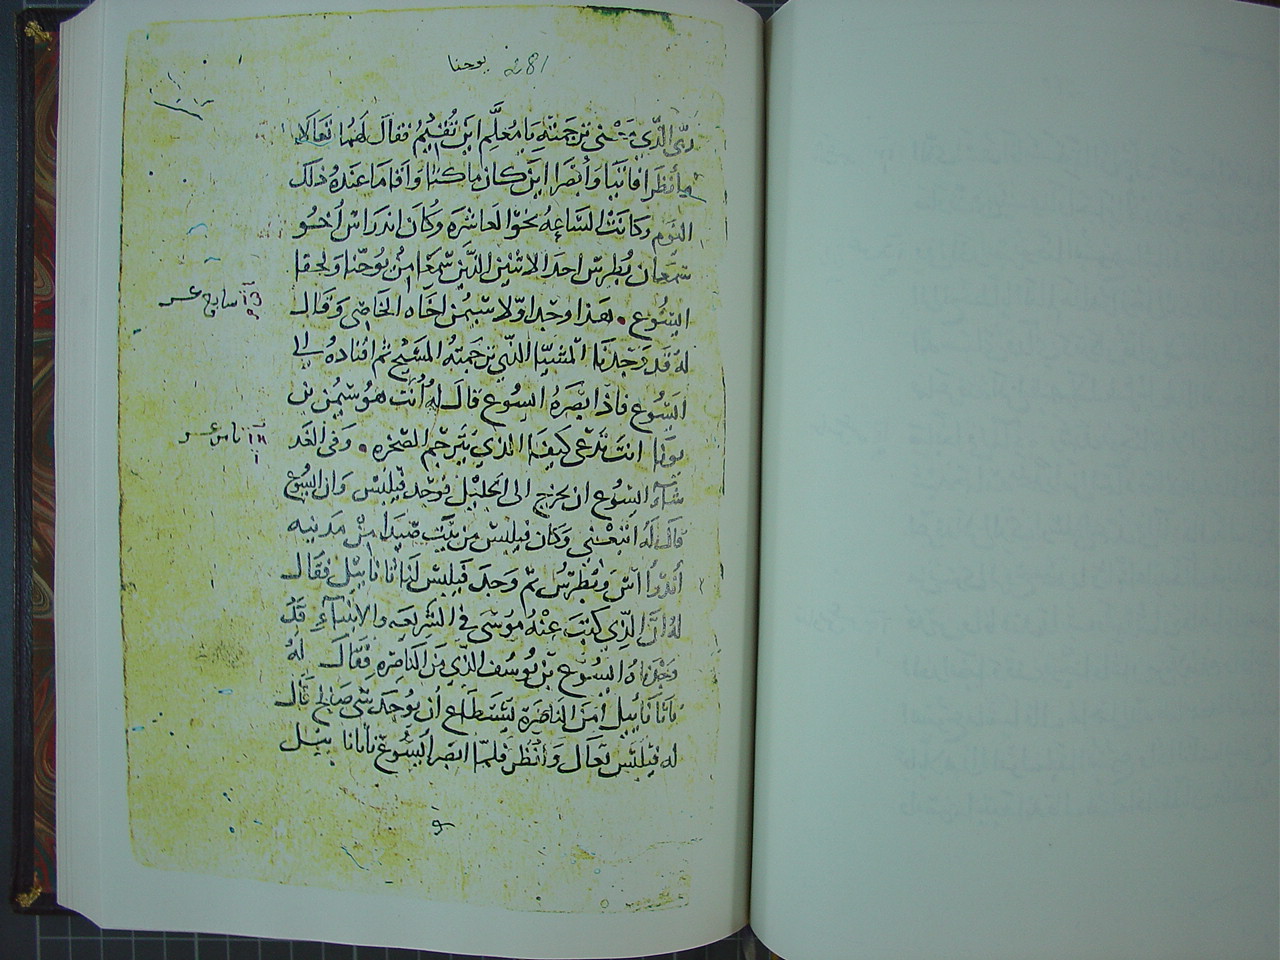 يوحنا 281
ربي الذي يعني ترجمته يا معلم اين تقيم فقال لهما تعالا
فانظرا فاتيا وأبصرا اين كان ماكثا وأقاما عنده ذلك
اليوم وكانت الساعه نحو العاشره وكان اندراس اخو
سمعان بطرس احد الاثنين الذين سمعا من يوحنا ولحقا
ايسوع . هذا وجد اولا سيمن اخاه الخاص وقال
سابع عشر
له قد وجدنا المشيا الذي ترجمته المسيح ثم اقتاده الى
ايسوع فاذا بصره ايسوع قال له أنت هو سيمن بن
يونا انت تدعى كيفا الذي يترجم الصخره . وفى الغد
ثامن عشر
شاء ايسوع ان يخرج الى الجليل فوجد فيلبس وان ايسوع
قال له اتبعني وكان فيلبس من بيت صيدا من مدينه
أندراس وبطرس ثم وجد فيلبس لناثانابيل فقال
له ان الذي كتب عنه موسى في الشريعه والانبياء قد
وجدناه ايسوع بن يوسف الذي من الناصره فقال له
ناثانابيل أمن الناصرة يستطاع أن يوجد شى صالح قال
له فيلبس تعال وأنظر فلما ابصر ايسوع ناثانابيل